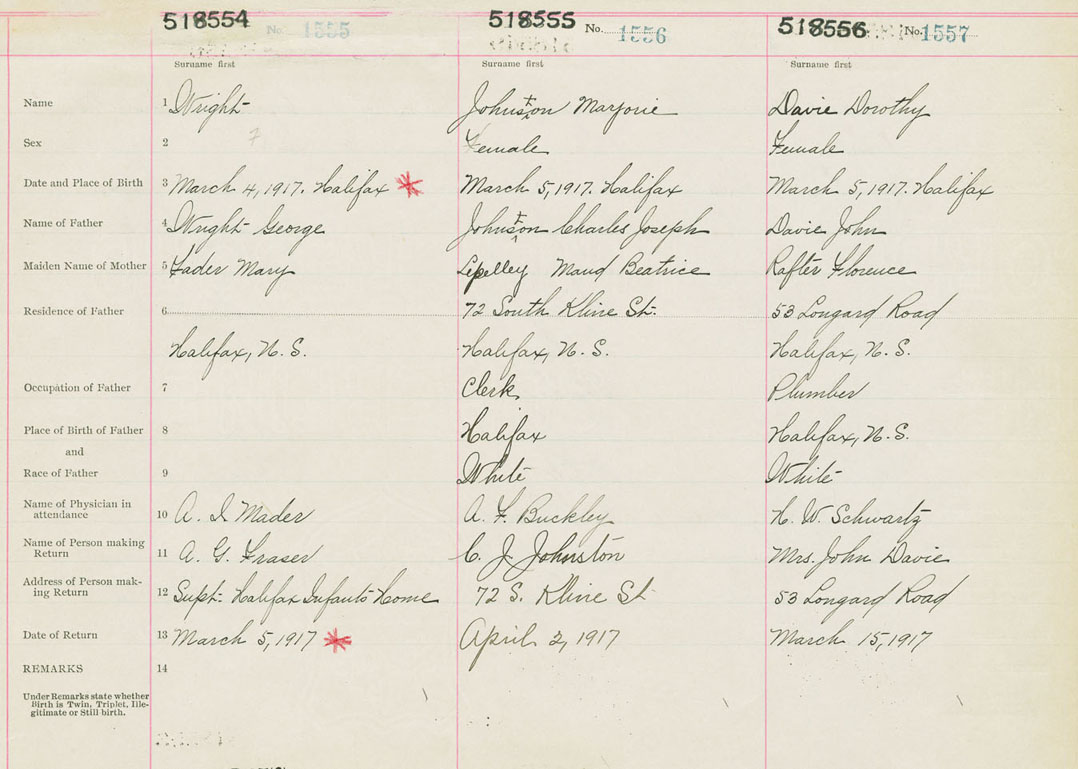 518554 No. 1555 518555 No. 1556 518556 No. 1557
Surname first Surname first Surname first
Name 1 Wright Johnston Marjorie Davie Dorothy
Sex 2 Female Female
Date and Place of Birth 3 March 4, 1917. Halifax March 5, 1917. Halifax March 5, 1917. Halifax
Name of Father 4 Wright George Johnston Charles Joseph Davie John
Maiden Name of Mother 5 Fader Mary Lepelley Maud Beatrice Rafter Florence
Residence of Father 6 72 South Kline St. 53 Longard Road
Halifax, N.S. Halifax, N.S. Halifax, N.S.
Occupation of Father 7 Clerk Plumber
Place of Birth of Father 8 Halifax Halifax, N.S.
and
Race of Father 9 White White
Name of Physician in
attendance 10 A. I Mader A. F. Buckley H. W. Schwartz
Name of Person making
Return 11 A. G. Fraser C. J. Johnston Mrs. John Davie
Address of Person mak-
ing Return 12 Supt. Halifax Infants Home 72 S. Kline St 53 Longard Road
Date of Return 13 March 5, 1917 April 2, 1917 March 15, 1917
REMARKS 14
Under Remarks state whether
Birth is Twin, Triplet, Ille-
gitimate or Still birth.